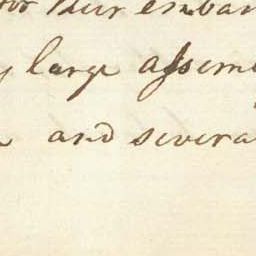 for their embar
y large assem
and severa